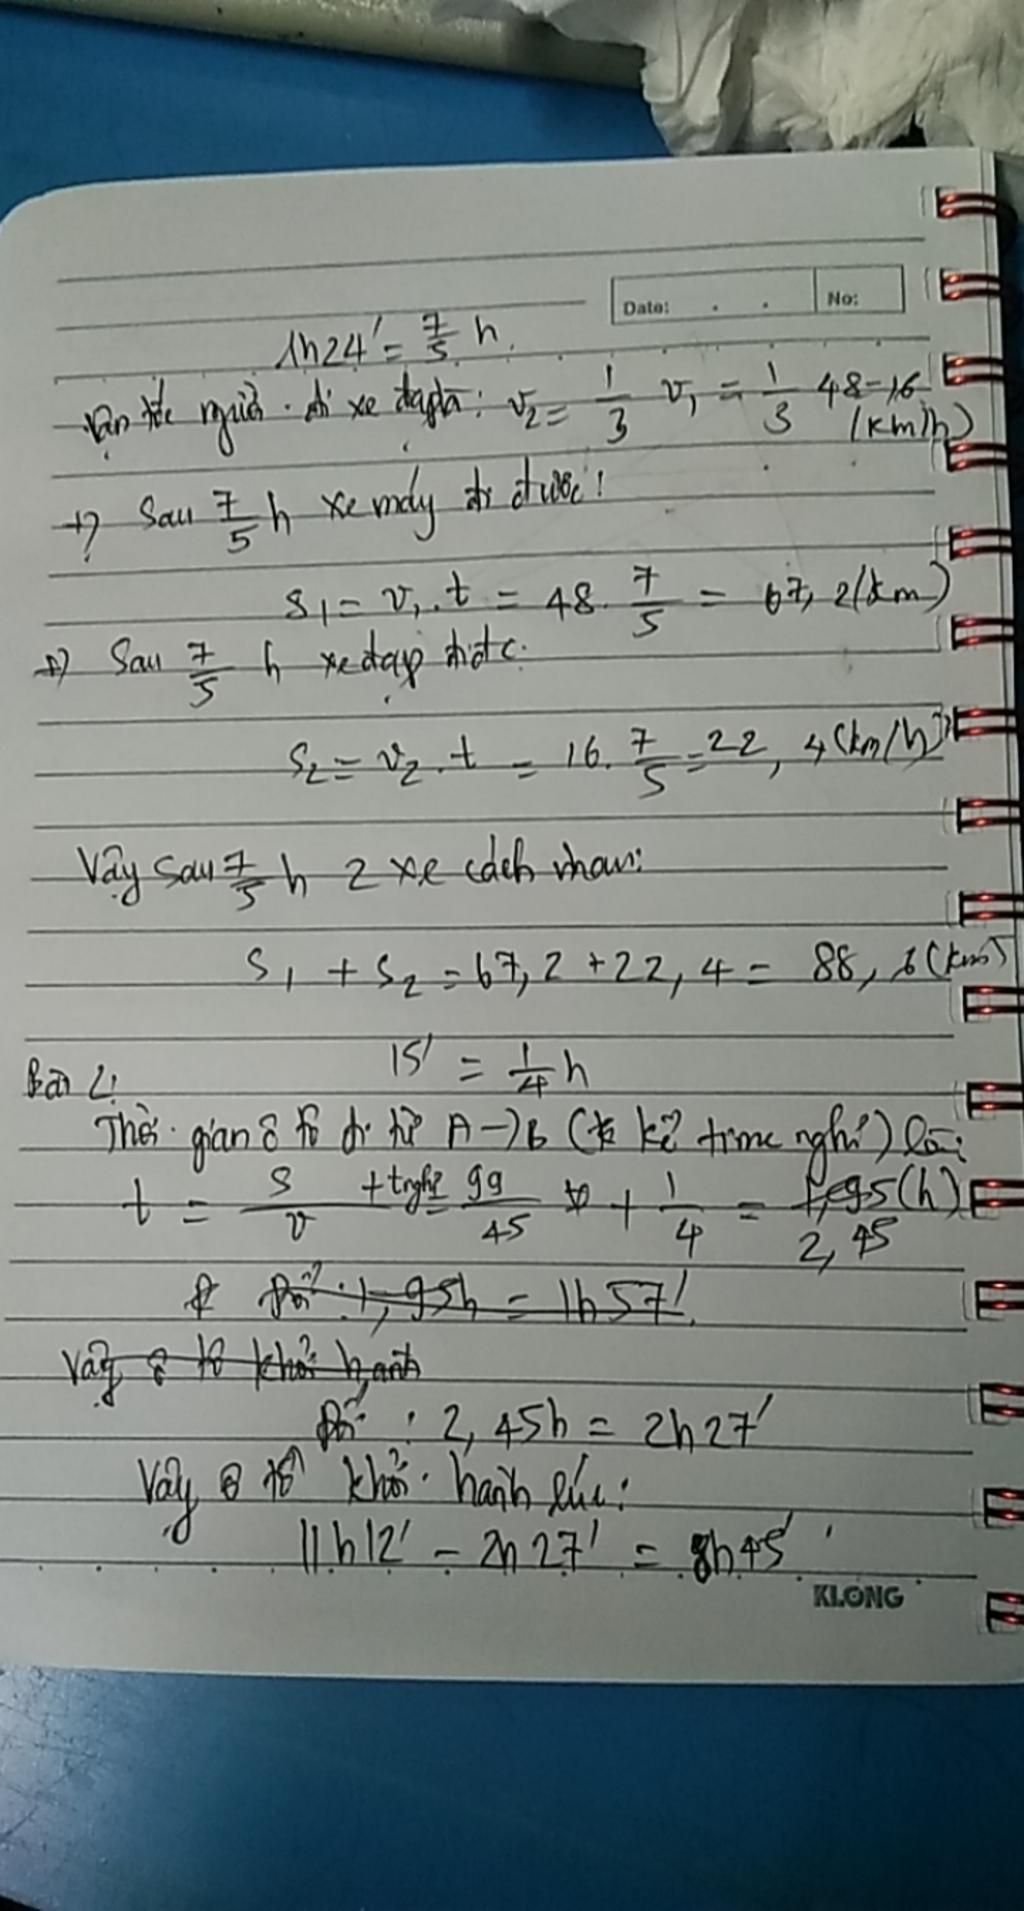 Date: . . No:
1h24' = 7/5 h.
Vận tốc người đi xe đạp là: v2 = 1/3 v1 = 1/3 48 = 16 (km/h)
+) Sau 7/5 h xe máy đi được:
S1 = v1 . t = 48 . 7/5 = 67,2 (km)
+) Sau 7/5 h xe đạp đi đc:
S2 = v2 . t = 16 . 7/5 = 22,4 (km/h)
Vậy sau 7/5 h 2 xe cách nhau:
S1 + S2 = 67,2 + 22,4 = 88,6 (km)
15' = 1/4 h
Bài 2:
Thời gian ô tô đi từ A -> B ( kể time nghỉ) là:
t = S/v + t nghỉ = 99/45 + 1/4 = 1,95 (h)
2,45
Đổi : 1,95h = 1h57'
Vậy ô tô khởi hành
Đổi : 2,45h = 2h27'
Vậy ô tô khởi hành lúc:
11h12' - 2h27' = 8h45'
KLONG